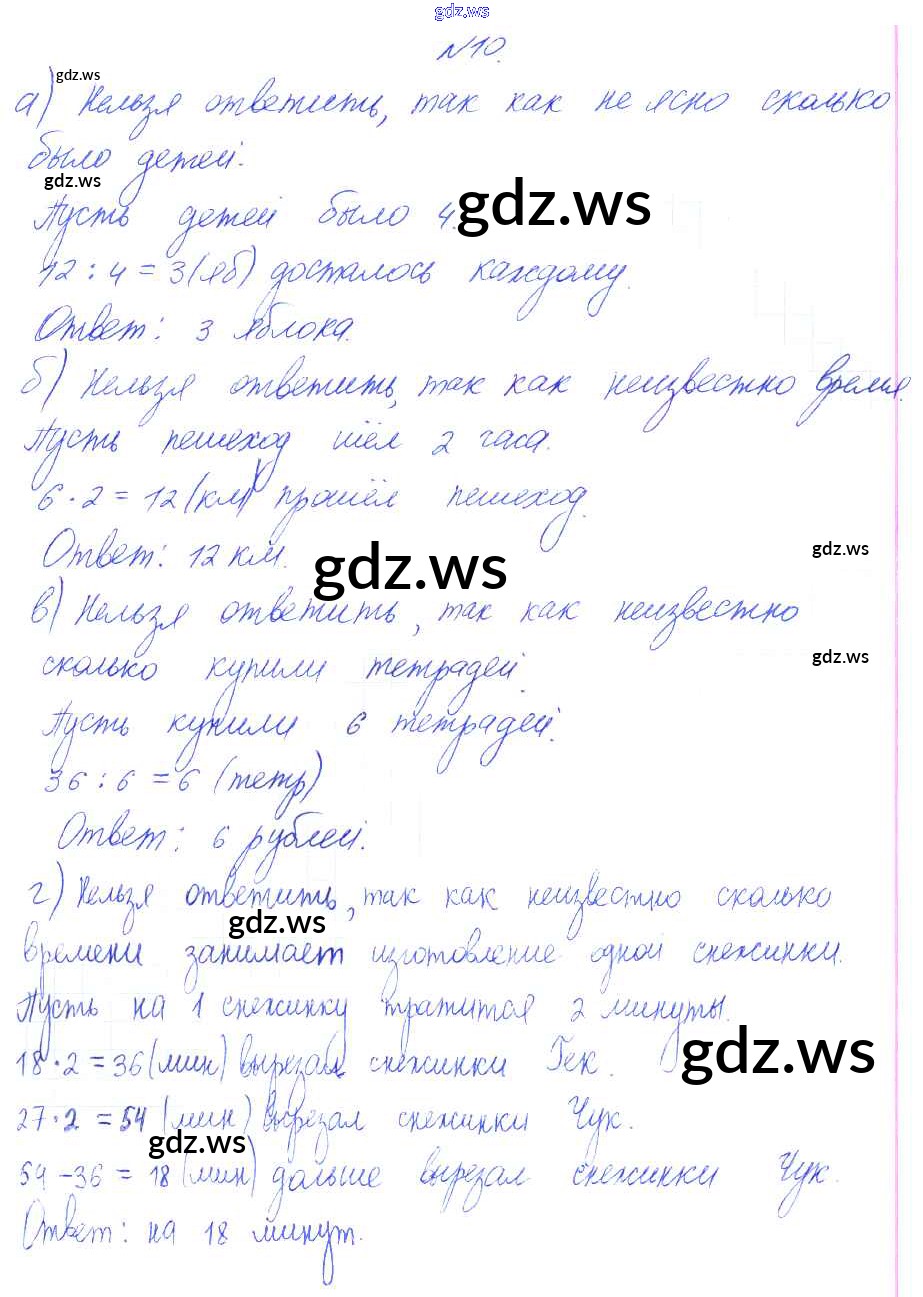 gdz.ws
№10.
gdz.ws
а) Нельзя ответить, так как не ясно сколько
было детей.
gdz.ws
Пусть детей было 4. gdz.ws
12 : 4 = 3(яб) досталось каждому.
Ответ: 3 яблока.
б) Нельзя ответить, так как неизвестно время.
Пусть пешеход шёл 2 часа.
6 · 2 = 12 (км) прошёл пешеход.
Ответ: 12 км. gdz.ws gdz.ws
в) Нельзя ответить, так как неизвестно
сколько купили тетрадей. gdz.ws
Пусть купили 6 тетрадей.
36 : 6 = 6 (тетр)
Ответ: 6 рублей.
г) Нельзя ответить, так как неизвестно сколько
gdz.ws
времени занимает изготовление одной снежинки.
Пусть на 1 снежинку тратится 2 минуты.
18 · 2 = 36 (мин) вырезал снежинки Гек. gdz.ws
27 · 2 = 54 (мин) вырезал снежинки Чук.
gdz.ws
54 - 36 = 18 (мин) дальше вырезал снежинки Чук.
Ответ: на 18 минут.